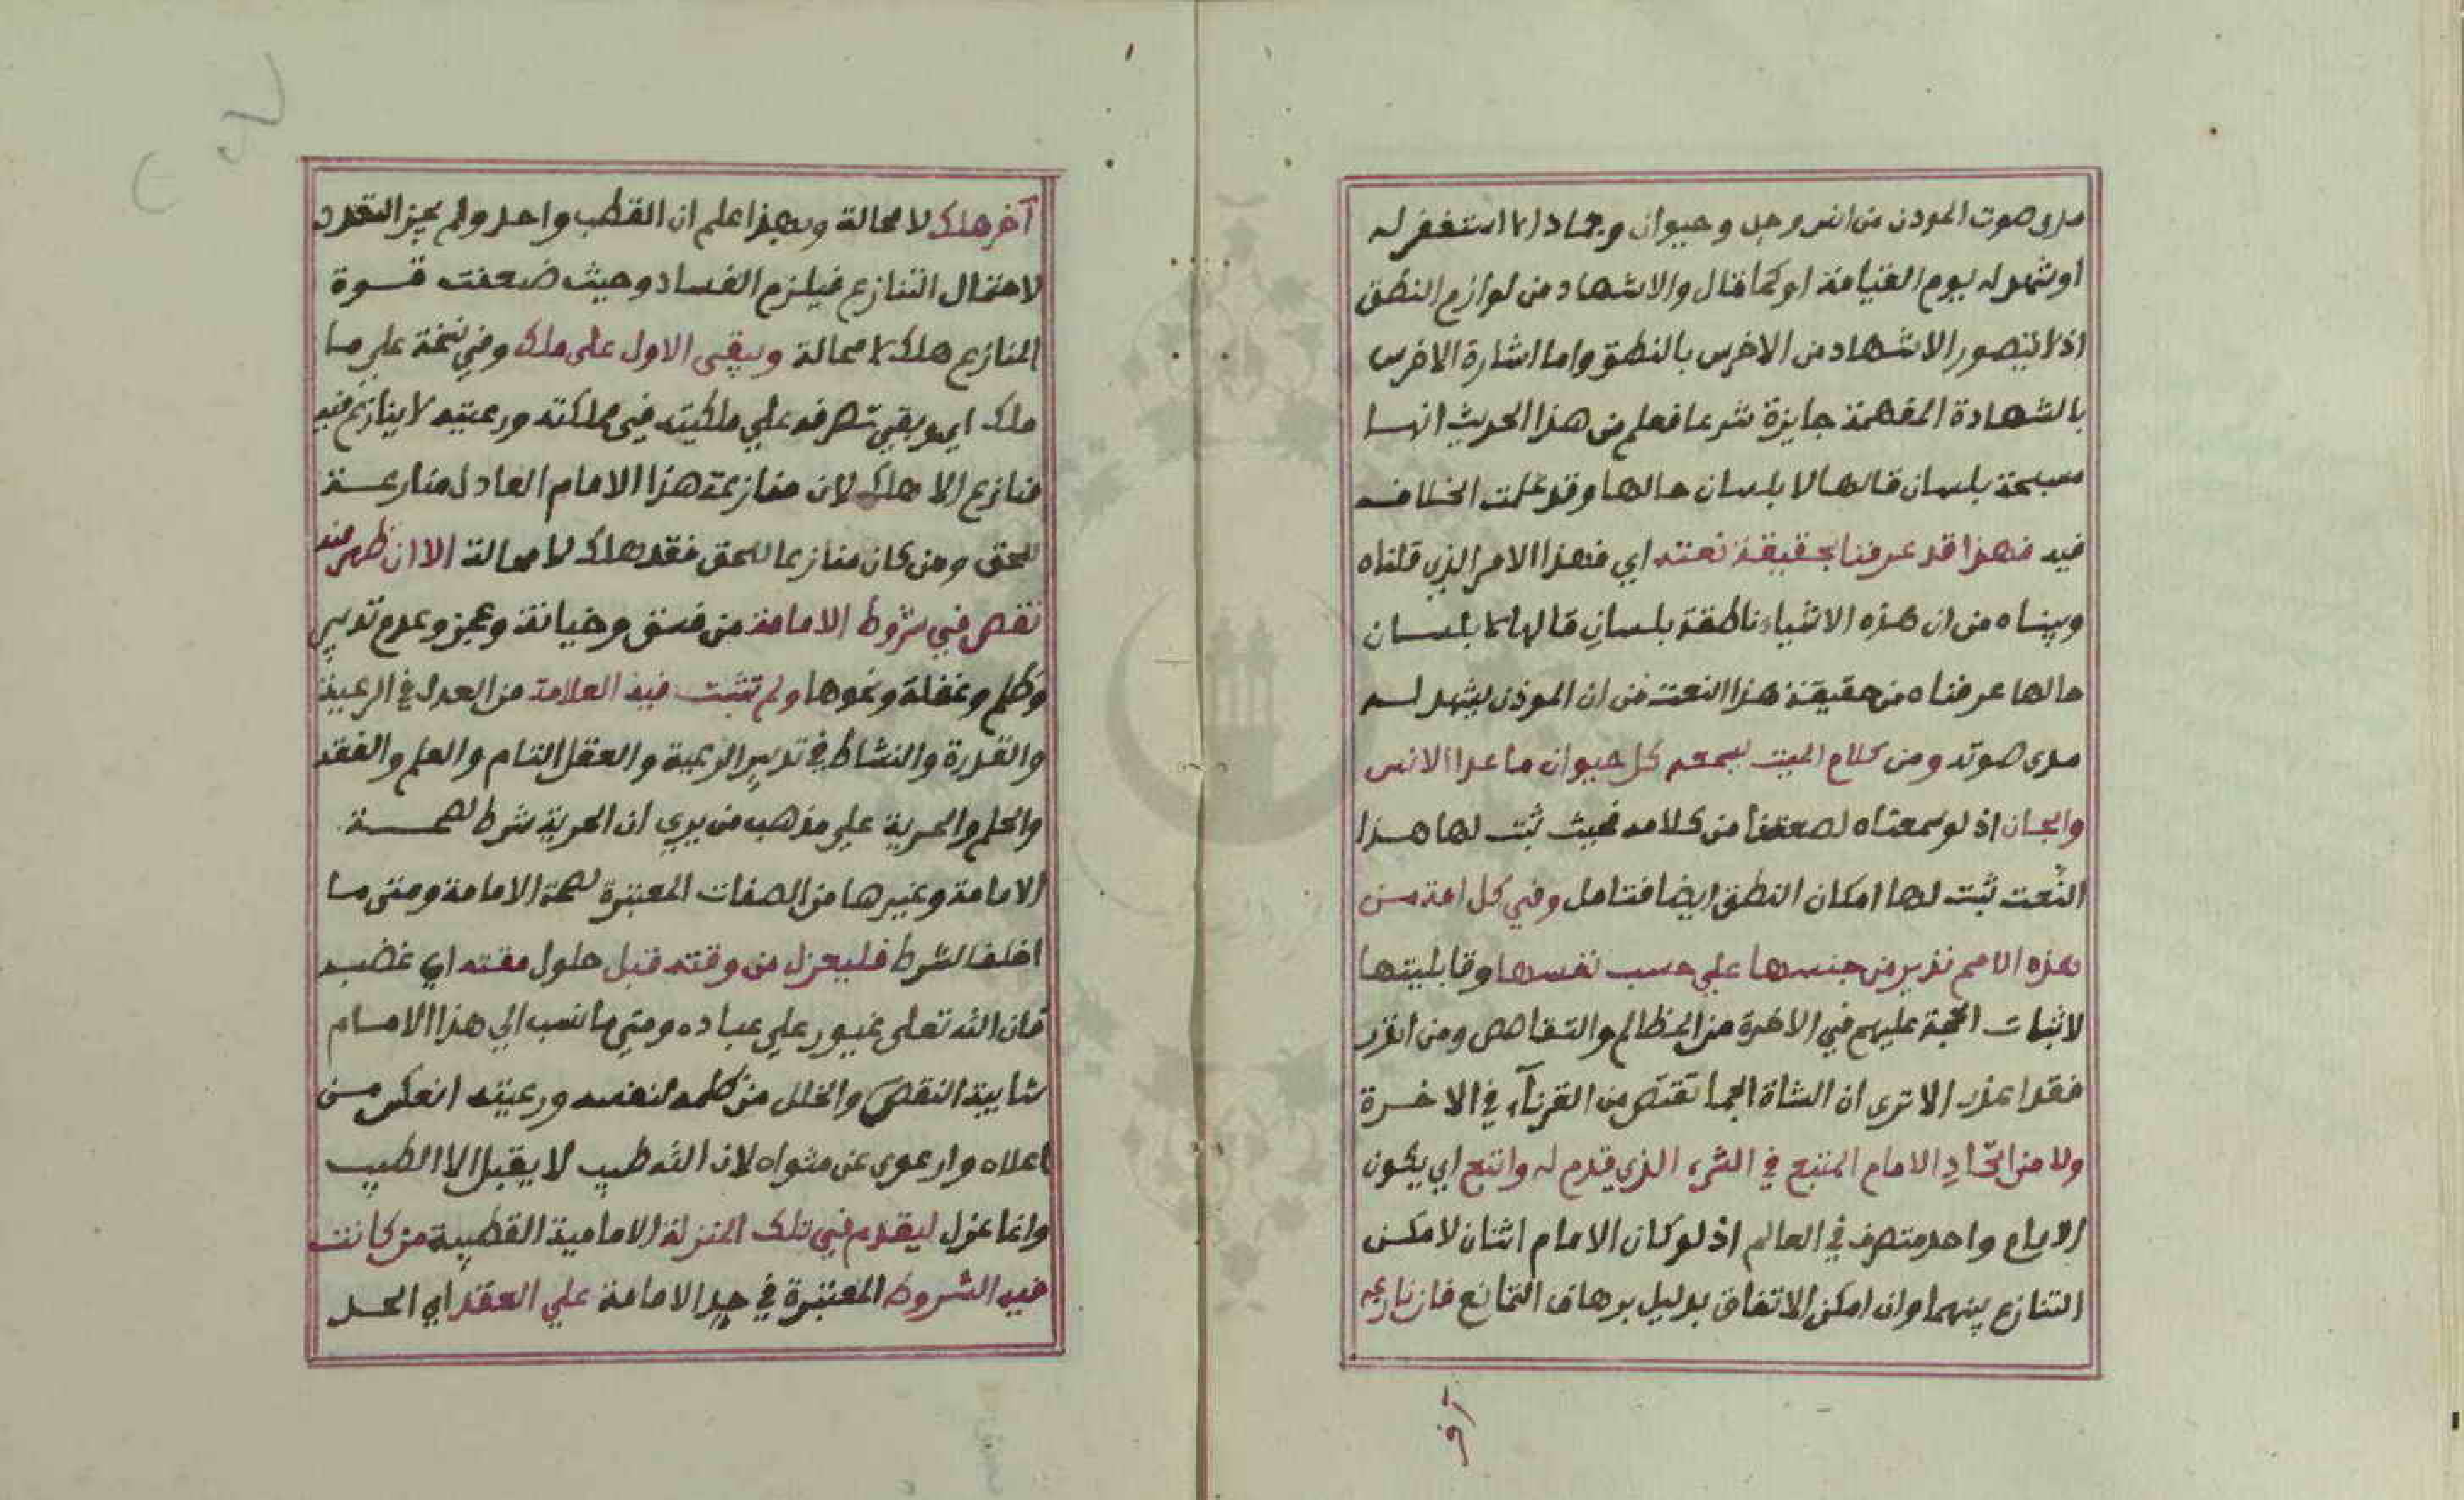 مدى صوت الموذن من انس وجن وحيوان وجماد الا استغفر له
او شهد له يوم القيامة او كما قال والاشهاد من لوازم النطق
اذ لا يتصور الاشهاد من الاخرس بالنطق واما اشارة الاخرس
بالشهادة المفهمة جايزة شرعا فعلم من هذا الحديث انها
مسبحة بلسان قالها لا بلسان حالها وقد علمت الخلاف
فيه فهذا قد عرفنا بحقيقة نعته اي فهذا الامر الذي قلناه
وبيناه من ان هذه الاشياء ناطقة بلسان قالها لا بلسان
حالها عرفناه من حقيقة هذا النعت من ان الموذن يشهد له
مدى صوته ومن كلام الميت يسمعه كل حيوان ما عدا الانس
والجان اذ لو سمعناه لصعقنا من كلامه فحيث ثبت لها هذا
النعت ثبت لها امكان النطق ايضا فتامل وفي كل امة من
هذه الامم نذير من جنسها علي حسب نفسها وقابليتها
لاثبات الحجة عليهم في الاخرة من المظالم والتقاصص ومن انذر
فقد اعذر الا ترى ان الشاة الجما تقتص من القرنآء في الاخرة
ولا من اتحاد الامام المتبع في الشرء الذي قدم له واتبع اي يكون
الامام واحد متصرف في العالم اذ لو كان الامام اثنان لامكن
التنازع بينهما وان امكن الاتفاق بدليل برهان التمانع فان نازعه
آخر
آخر هلك لا محالة وبهذا علم ان القطب واحد ولم يجز التعدد
لاحتمال التنازع فيلزم الفساد وحيث ضعفت قوة
المنازع هلك لا محالة ويبقى الاول على ملك وفي نسخة علي ما
ملك اي ويبقي تصرفه علي ملكيته في مملكته ورعيته لا ينازع فيه
منازع الا هلك لان منازعة هذا الامام العادل منازعة
للحق ومن كان منازعا للحق فقد هلك لا محالة الا ان ظهر منه
نقص في شروط الامامة من فسق وخيانة وعجز وعدم تدبير
وظلم وغفلة ونحوها ولم تثبت فيه العلامة من العدل في الرعية
والقدرة والنشاط في تدبير الرعية والعقل التام والعلم والفقه
والحلم والحرية علي مذهب من يري ان الحرية شرط لصحة
الامامة وغيرها من الصفات المعتبرة لصحة الامامة ومتى ما
اختلف الشرط فليعزل من وقته قبل حلول مقته اي غضبه
فان الله تعلى غيور علي عباده ومتي ما نسب الي هذا الامام
شايبة النقص والخلل من ظلمه لنفسه ورعيته انعكس من
اعلاه وارعوي عن مثواه لان الله طيب لا يقبل الا الطيب
وانما عزل ليقدم في تلك المنزلة الامامية القطبية من كانت
فيه الشروط المعتبرة في حد الامامة علي العقد اي الحل